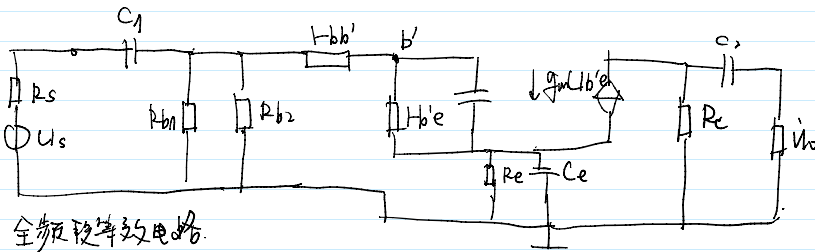 C1
rbb'
b'
C2
Rs
Us
Rb1
Rb2
rb'e
gmUb'e
Rc
Uo
Re
Ce
全频段等效电路.